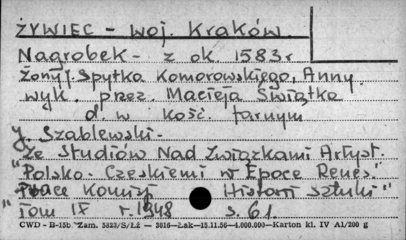 ŻYWIEC - woj. Kraków
Nagrobek - z ok 1583 r
żony J. Spytka Komorowskiego, Anny
wyk. przez. Macieja Świątka
d. w kość. farnym
J. Szablewski -
"Ze Studiów Nad Związkami Artyst.
Polsko - Czeskiemi w Epoce Renes."
Prace Komisji Historii Sztuki"
"Tom IX r. 1948 s. 61.
CWD - B-15b Zam. 5823/S/Lż — 3016—Łak—15.11.56—4.000.000—Karton kl. IV A1/200 g